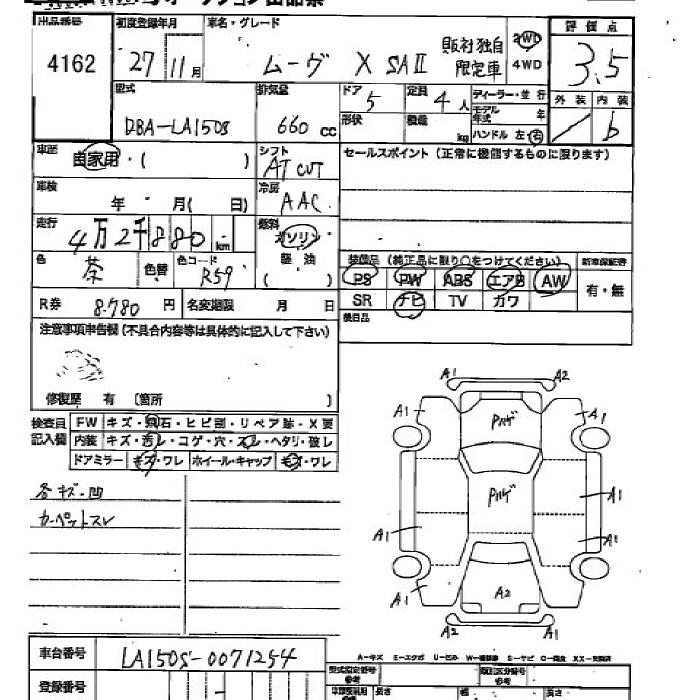 出品番号 初度登録年月 車名・グレード 評価点
4162 27年11月 ムーヴ X SAⅡ 販社独自限定車 2WD 4WD 3.5
型式 排気量 ドア 定員 ディーラー・並行 外装 内装
DBA-LA150S 660cc 5 4人 モデル年式 年 b
形状 積載 kg ハンドル 左・右
車歴 自家用・( ) シフト AT CVT セールスポイント(正常に機能するものに限ります)
車検 年 月( 日) 冷房 AAC
走行 4万2千880km 燃料 ガソリン 軽油 ( )
色 茶 色替 色コード R59 装備品(純正品に限り○をつけてください) 新車保証書
PS PW ABS エアB AW 有・無
R券 8,780円 名変期限 月 日 SR ナビ TV カワ
注意事項申告欄(不具合内容等は具体的に記入して下さい)
修復歴 有 (箇所 )
検査員記入欄 FW キズ・飛石・ヒビ割・リペア跡・X要
内装 キズ・汚レ・コゲ・穴・スレ・ヘタリ・破レ
ドアミラー キズ・ワレ ホイール・キャップ キズ・ワレ
各キズ・凹
カーペットスレ
A1 A2
A1 Pハゲ A1
Pハゲ
A1
A1 A1
A1 A2
A2 A1
A-キズ E-エクボ U-凹み W-補修跡 S-サビ C-腐食 XX-交換済
車台番号 LA150S-0071254 型式指定番号 参考 類別区分番号 参考
登録番号 長さ 幅 高さ